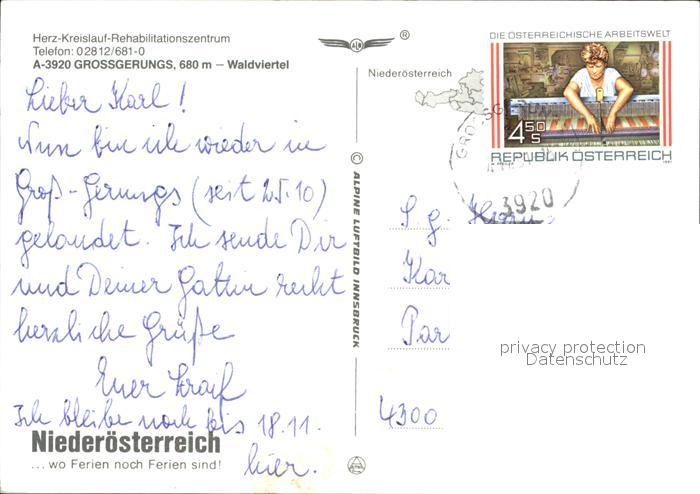 Herz-Kreislauf-Rehabilitationszentrum
Telefon: 02812/681-0
A-3920 GROSSGERUNGS, 680 m – Waldviertel
Lieber Karl!
Nun bin ich wieder in
Groß-Gerungs (seit 25.10)
gelandet. Ich sende Dir
und Deiner Gattin recht
herzliche Grüße
Euer
Ich bleibe noch bis 18.11.
hier.
Niederösterreich
...wo Ferien noch Ferien sind!
©ALPINE LUFTBILD INNSBRUCK
ALI
®
Niederösterreich
DIE ÖSTERREICHISCHE ARBEITSWELT
4 50 S
REPUBLIK ÖSTERREICH
3920
S. g. Herrn
Kar
Par
4300
privacy protection
Datenschutz